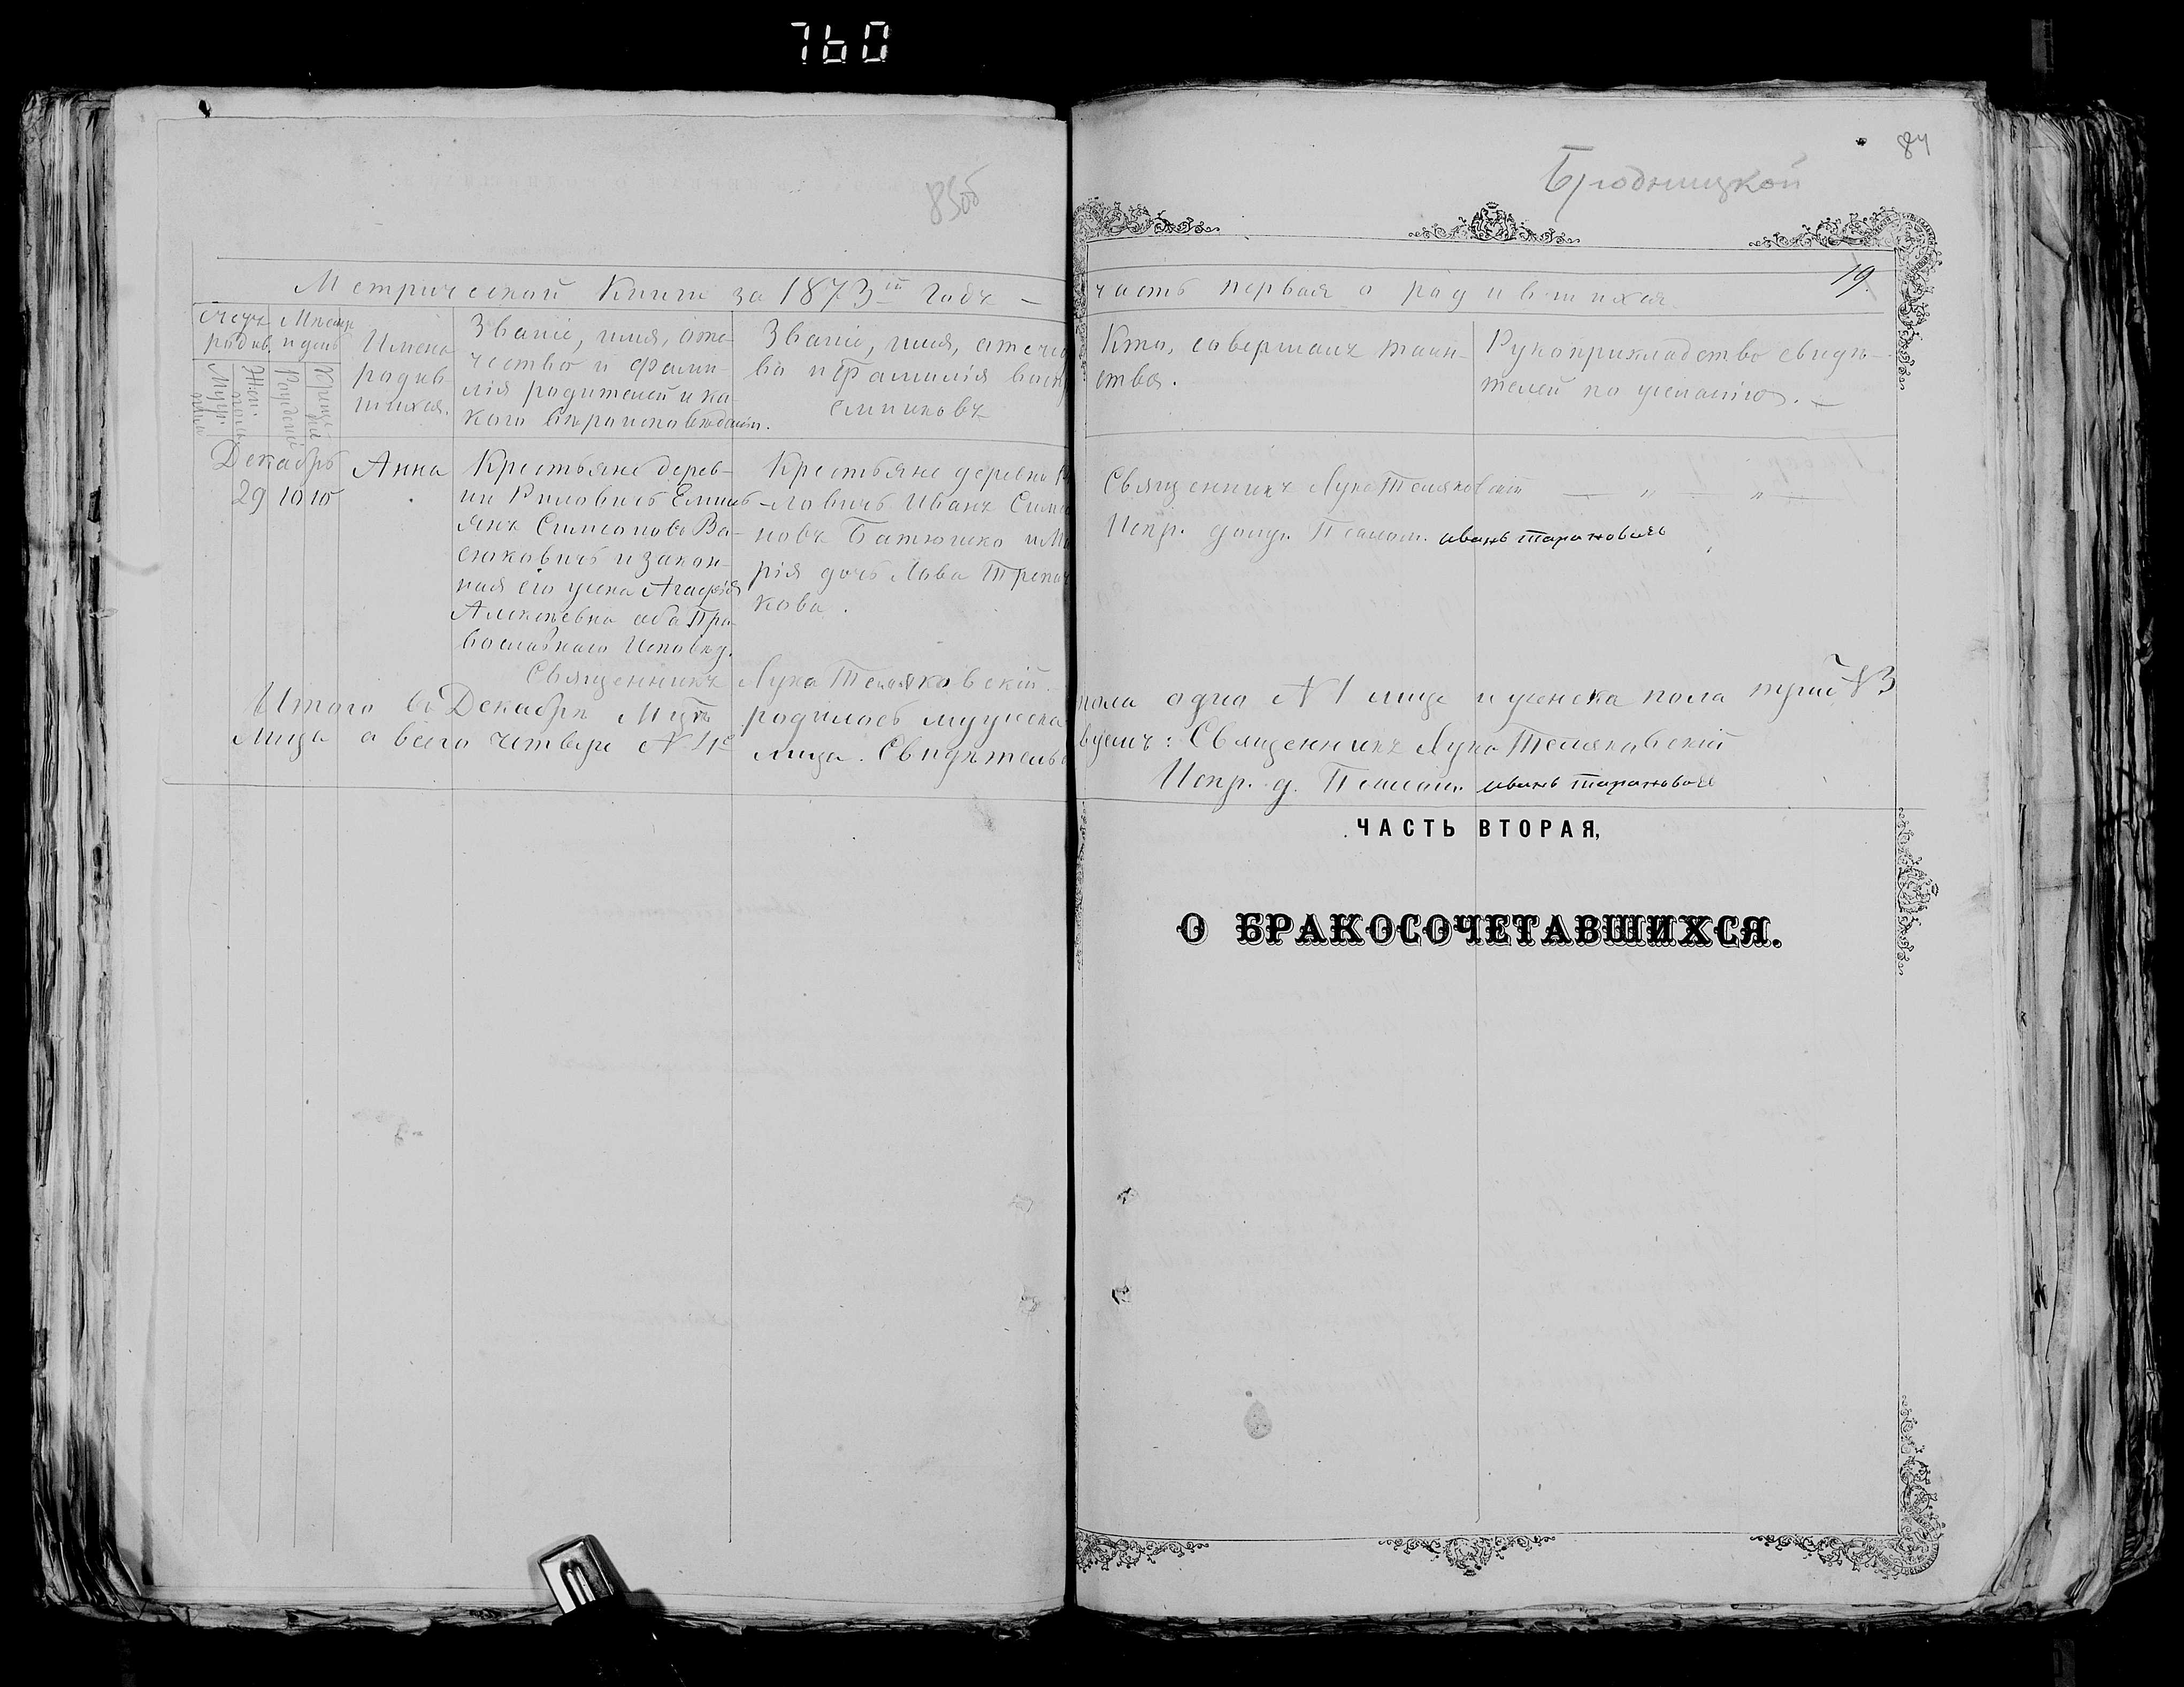 760
83об
84
Бродницкой
19
Метрической Книги за 1873ій Годъ –
часть первая о родившихся
Счетъ родив.
Мужс. полъ
Женс. полъ
Месяцъ и день
Рожденія
Крещенія
Имена
родив-
шихся.
Званіе, имя, оте-
чество и фами-
лія родителей и ка-
кого вѣроисповѣданія.
Званіе, имя, отечес
во и фамилія воспр
емниковъ
Кто, совершалъ таин-
ства.
Рукоприкладство свидѣ-
телей по желанію. –
Декабрь
29 10 10
Анна
Крестьяне дерев-
ни Емель
янъ Симеоновъ Ва-
сюковичъ и закон-
ная его жена Агафія
Алексѣевна оба Пра-
вославнаго Исповѣд.
Крестьяне деревни
ловичъ Иванъ Симео
новъ Батюшко и Ма
рія дочь Лава
кова.
Священникъ Лука Теляковскій — „ — „ —
Испр. долж. Псалом. иванъ тарановичъ
Священникъ Лука Теляковскій.
Итого въ Декабрѣ Мцѣ родилось мужеска пола одно N 1 лице и женска пола три N 3
лица а всего четыре N 4е лица. Свидѣтельствуемъ: Священникъ Лука Теляковскій
Испр. д. Псалом. иванъ тарановичъ
ЧАСТЬ ВТОРАЯ,
О БРАКОСОЧЕТАВШИХСЯ.